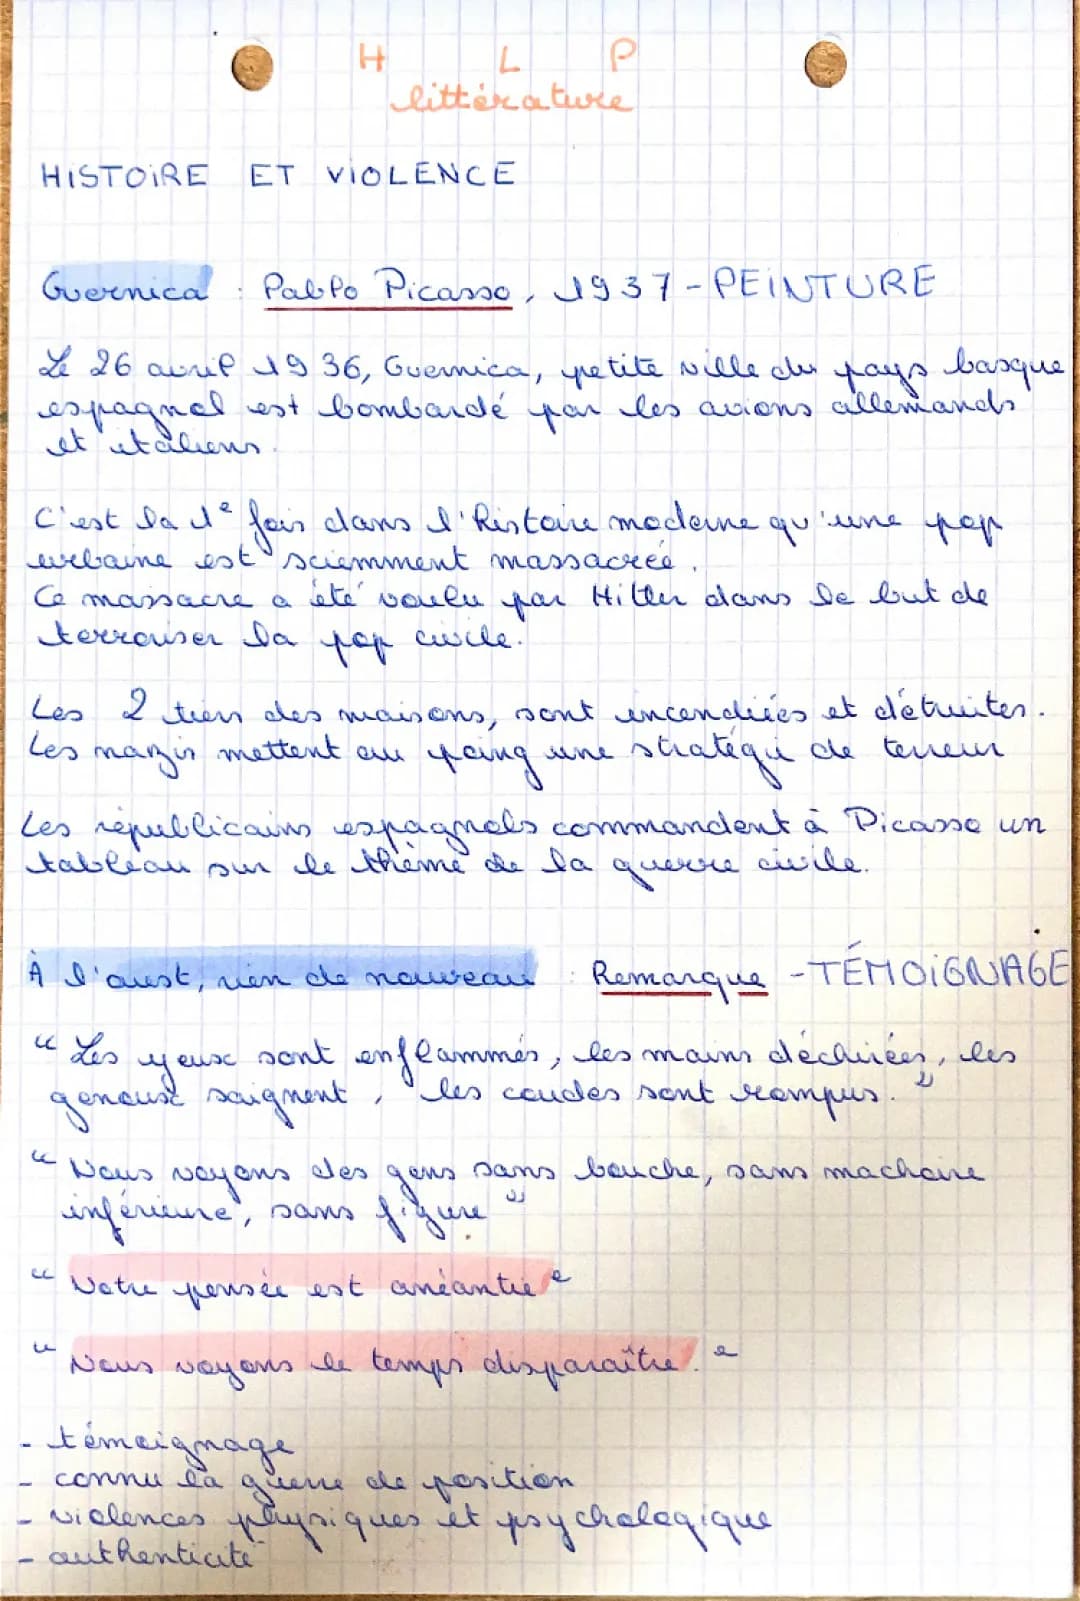 H L P
littérature
HISTOIRE ET VIOLENCE
Guernica : Pablo Picasso, 1937 - PEINTURE
Le 26 avril 1936, Guernica, petite ville du pays basque
espagnol est bombardé par les avions allemands
et italiens.
C'est la 1e fois dans l'histoire moderne qu'une pop
urbaine est sciemment massacrée.
Ce massacre a été voulu par Hitler dans le but de
terroriser la pop civile.
Les 2 tiers des maisons, sont incendiées et détruites.
Les nazis mettent au poing une stratégie de terreur
Les républicains espagnols commandent à Picasso un
tableau sur le thème de la guerre civile.
À l'ouest, rien de nouveau : Remarque - TÉMOIGNAGE
" Les yeux sont enflammés, les mains déchirées, les
genoux saignent, les coudes sont rompus. "
" Nous voyons des gens sans bouche, sans machoire
inférieure, sans figure "
" Notre pensée est anéantie "
" Nous voyons le temps disparaître. "
- témoignage
- connu la guerre de position
- violences physiques et psychologique
- authenticité